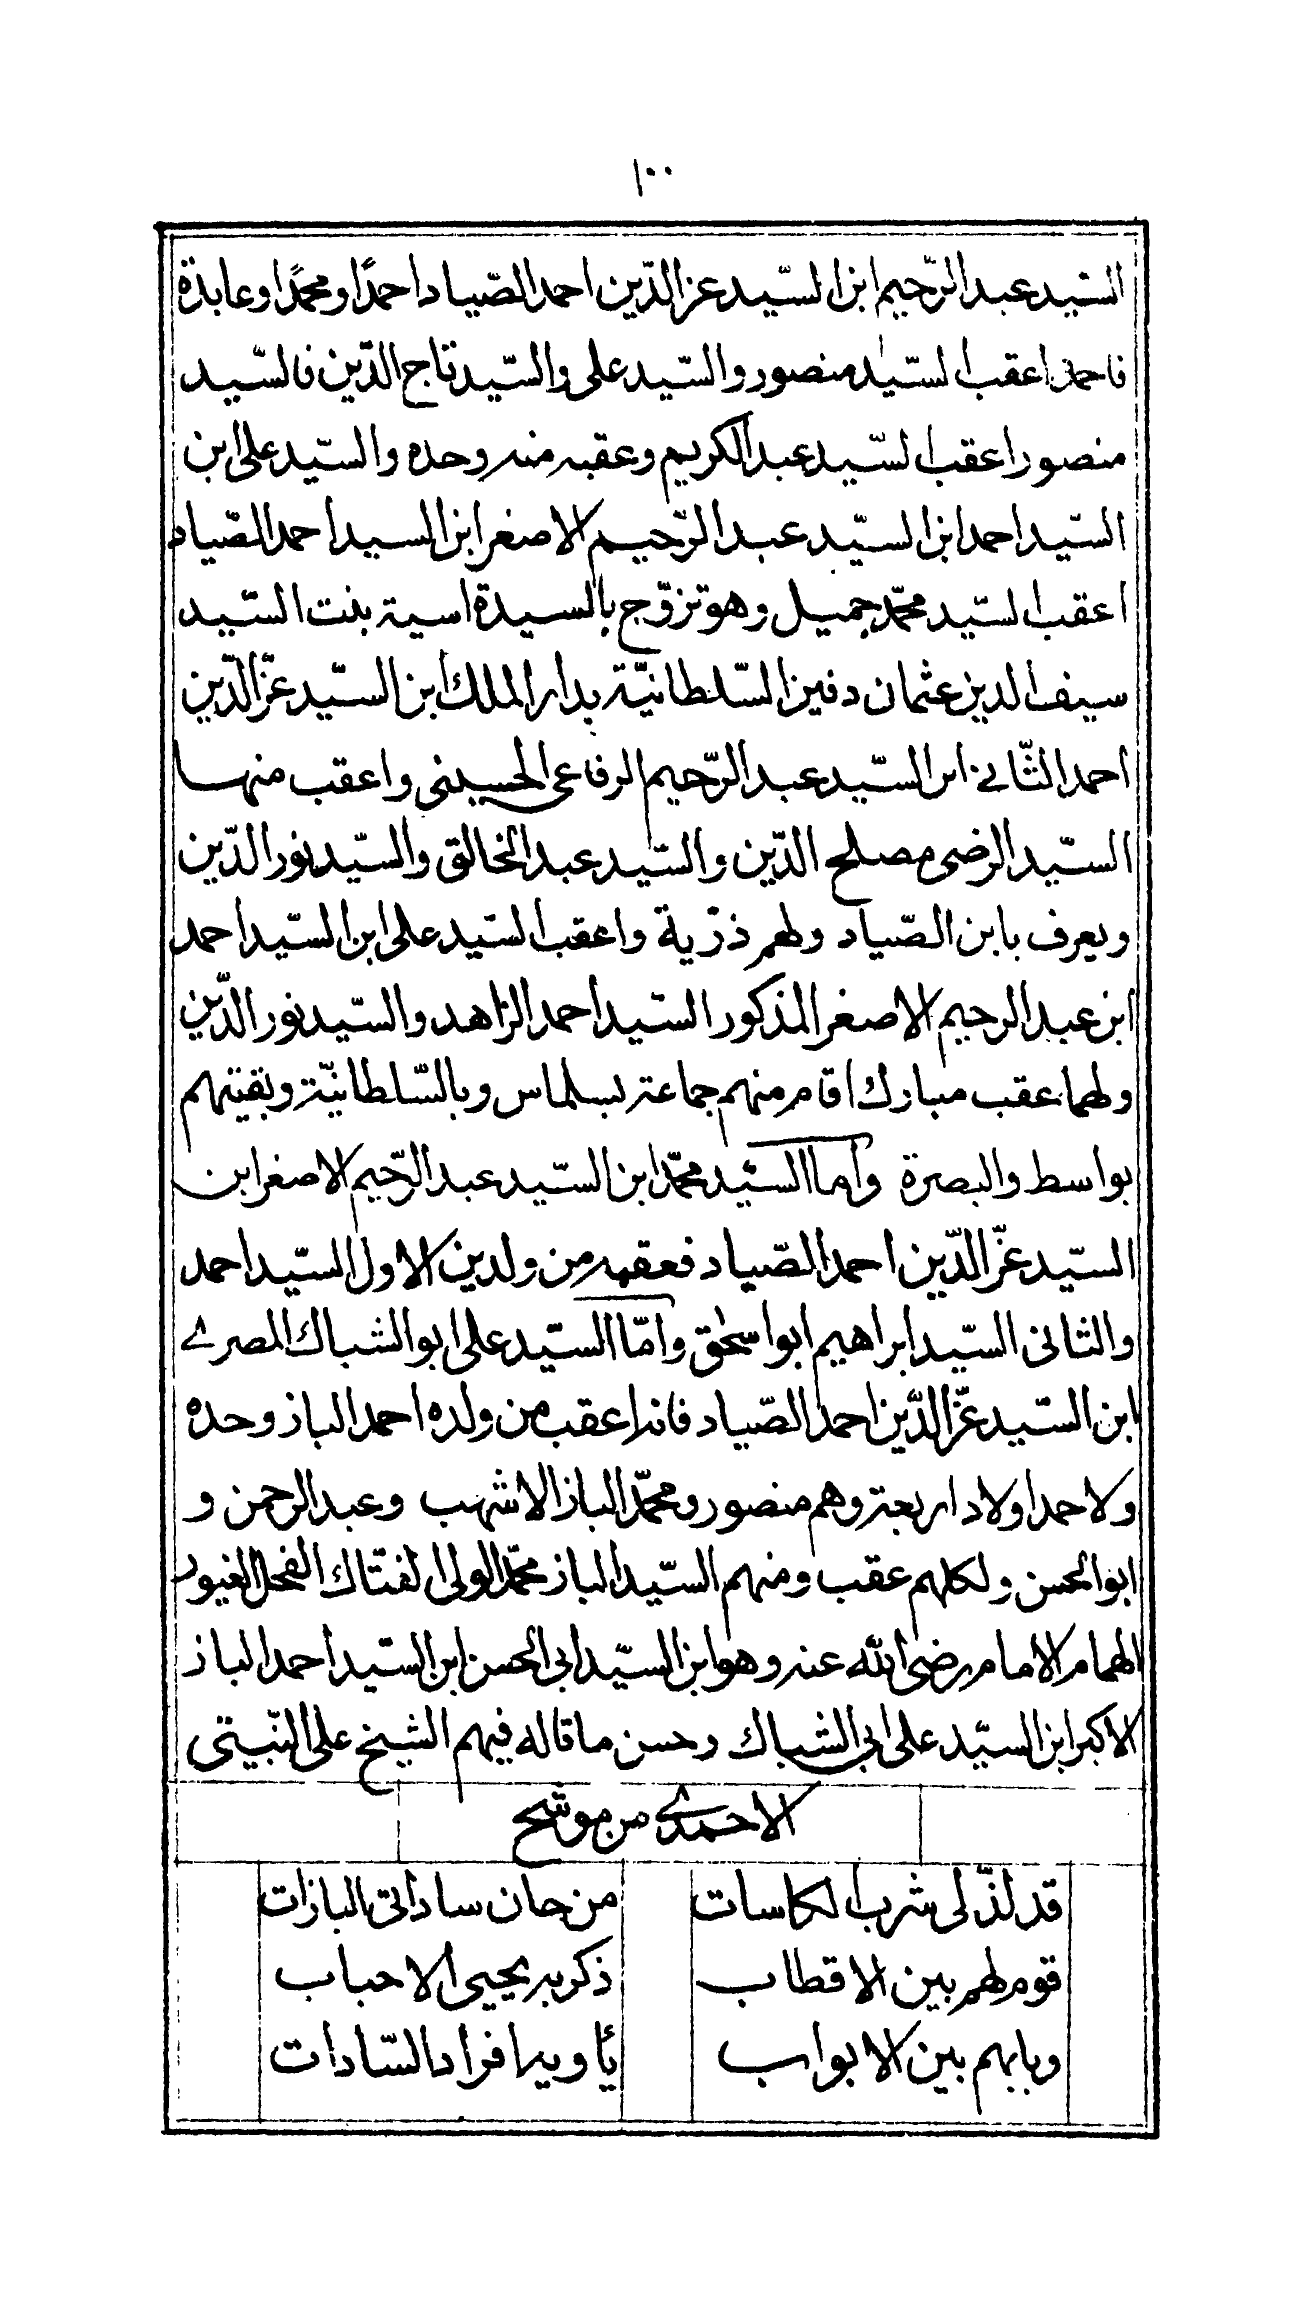 ١٠٠
السّيد عبد الرّحيم ابن السّيد عز الدّين احمد الصّياد احمدًا ومحمدًا وعابدة
فاحمد اعقب السّيد منصور والسّيد على والسّيد تاج الدّين فالسّيد
منصور اعقب السّيد عبد الكريم وعقبه منه وحده والسّيد على ابن
السّيد احمد ابن السّيد عبد الرّحيم الاصغر ابن السيد احمد الصّياد
اعقب السّيد محمّد جميل وهو تزوّج بالسيدة اسية بنت السّيد
سيف الدين عثمان دفين السّلطانيّة بدار الملك ابن السّيد عزّ الدّين
احمد الثّانى ابن السّيد عبد الرّحيم الرفاعى الحسينى واعقب منها
السّيد الرضى مصلح الدّين والسّيد عبد الخالق والسّيد نور الدّين
ويعرف بابن الصّياد ولهم ذرّية واعقب السّيد على ابن السّيد احمد
ابن عبد الرحيم الاصغر المذكور السّيد احمد الزاهد والسّيد نور الدّين
ولهما عقب مبارك اقام منهم جماعة بسلماس وبالسّلطانيّة وبقيتهم
بواسط والبصرة وأما السيّد محمّد ابن السّيد عبد الرّحيم الاصغر ابن
السّيد عزّ الدّين احمد الصّياد فعقبه من ولدين الاول السّيد احمد
والثانى السّيد ابراهيم ابو اسحق وامّا السّيد على ابو الشباك المصرى
ابن السّيد عزّ الدّين احمد الصّياد فانه اعقب من ولده احمد الباز وحده
ولاحمد اولاد اربعة وهم منصور ومحمّد الباز الاشهب وعبد الرحمن و
ابو الحسن ولكلهم عقب ومنهم السّيد الباز محمّد الولى الفتاك الفحل الغيور
الهمام الامام رضى الله عنه وهو ابن السّيد ابى الحسن ابن السّيد احمد الباز
الاكبر ابن السيّد على ابى الشباك وحسن ما قاله فيهم الشيخ على النّبيتى
الاحمدى من موشح
قد لذّ لى شرب الكاسات من حان ساداتى البازات
قوم لهم بين الاقطاب ذكر به يحيى الاحباب
وبابهم بين الابواب يأويه افراد السّادات